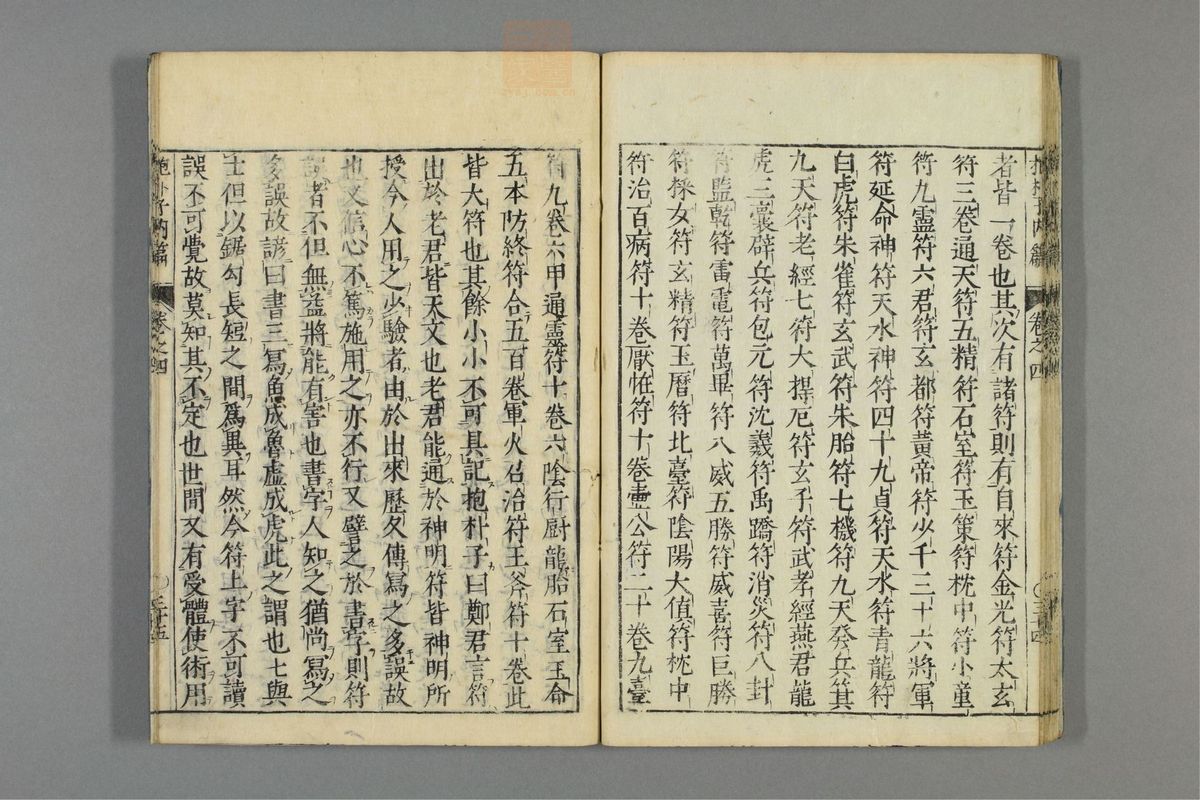 者皆一卷也其次有諸符則有自來符金光符太玄
符三卷通天符五精符石室符玉策符枕中符小童
符九靈符六君符玄都符黃帝符少千三十六將軍
符延命神符天水神符四十九貞符天水符青龍符
白虎符朱雀符玄武符朱胎符七機符九天發兵其
九天符老經七符大捍厄符玄子符武孝經燕君龍
虎三囊辟兵符包元符沈羲符禹蹻符消災符八卦
符監乾符雷電符萬畢符八威五勝符威喜符巨勝
符採女符玄精符玉曆符北臺符陰陽大值符枕中
符治百病符十卷厭恠符十卷壷公符二十卷九臺
卷之四
三十四
符九卷六甲通靈符十卷六陰行厨龍胎石室玉命
五本防終符合五百卷軍火召治符王斧符十卷此
皆大符也其餘小小不可具記抱朴子曰鄭君言符
出於老君皆天文也老君能通於神明符皆神明所
授今人用之少驗者由於出來歷久傳寫之多誤故
也又信心不篤施用之亦不行又譬之於書字則符
誤者不但無益將能有害也書字人知之猶尚寫之
多誤故諺曰書三寫魚成魯虛成虎此之謂也七與
士但以鋸勾長短之間爲異耳然今符上字不可讀
誤不可覺故莫知其不定也世間又有受體使術用
抱朴子內篇
卷之四
三十五